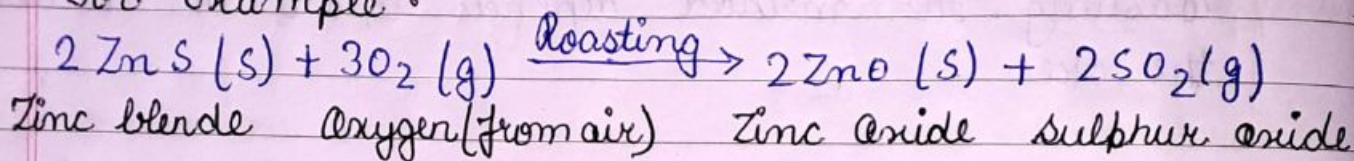 for example :
2 ZnS (s) + 3O₂ (g) Roasting → 2ZnO (s) + 2SO₂(g)
Zinc blende oxygen(from air) Zinc oxide sulphur oxide